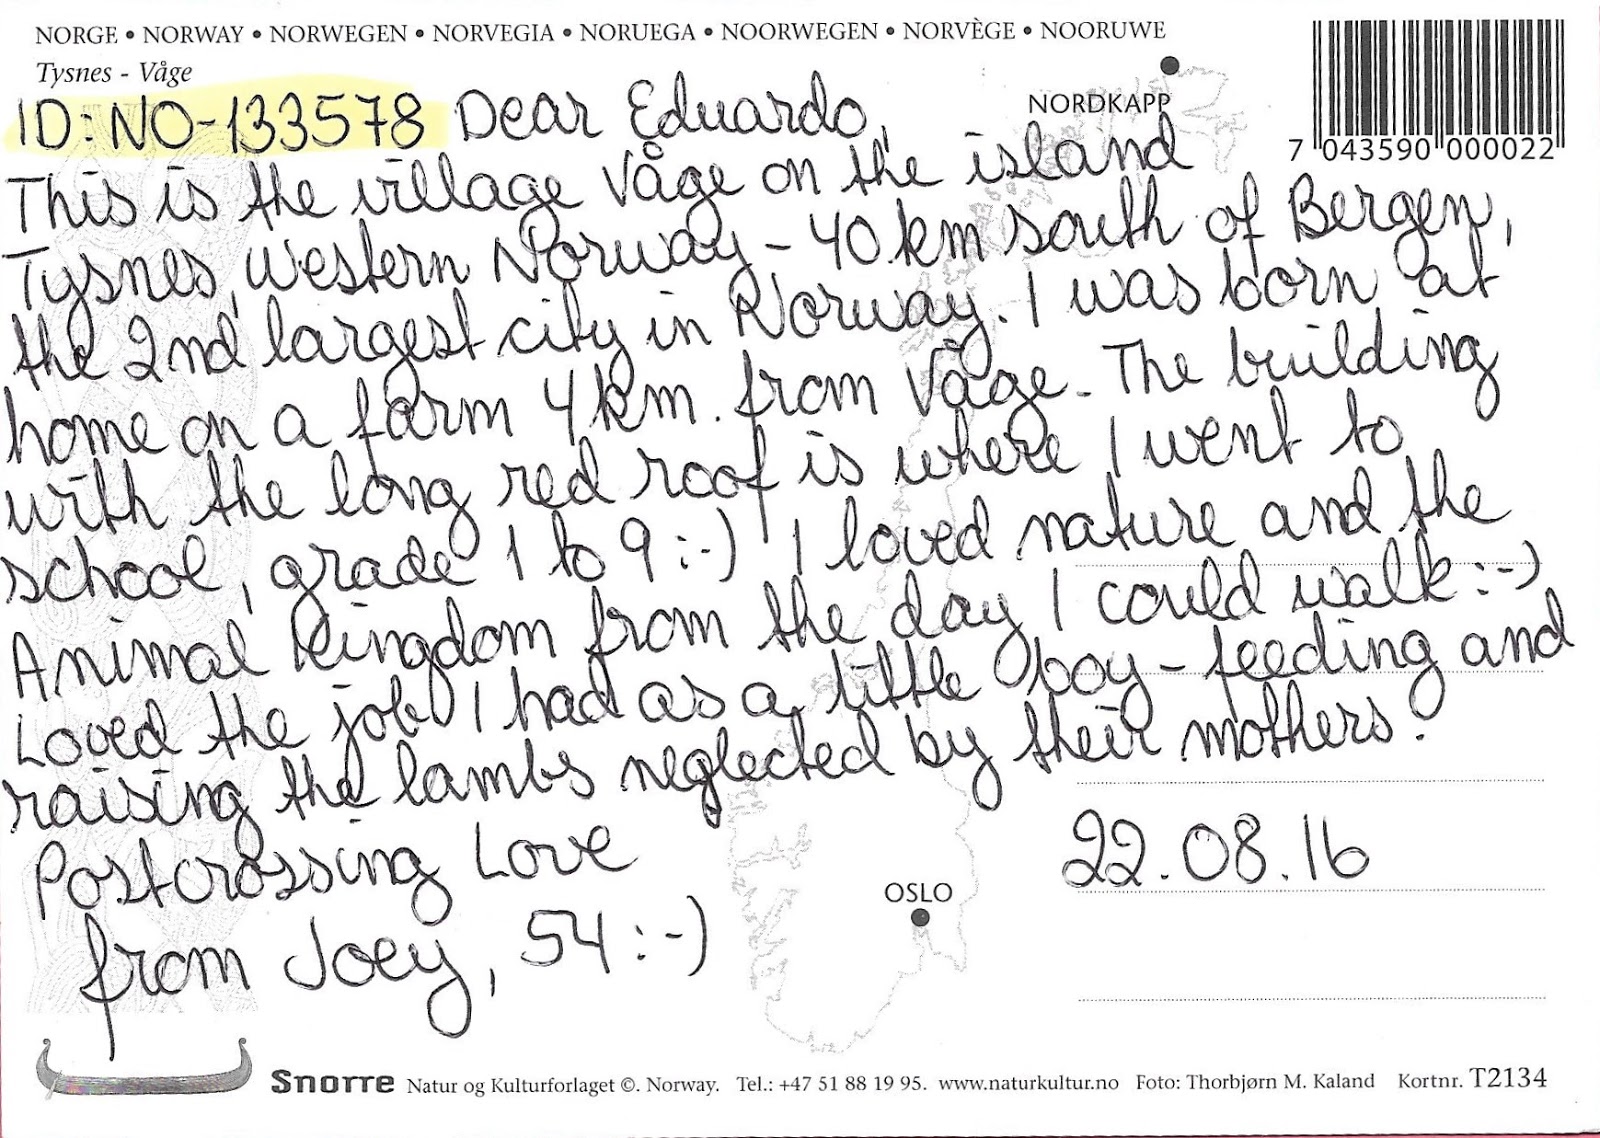 NORGE • NORWAY • NORWEGEN • NORVEGIA • NORUEGA • NOORWEGEN • NORVÈGE • NOORUWE
Tysnes - Våge
NORDKAPP
7 043590 000022
ID: NO-133578 Dear Eduardo,
This is the village Våge on the island
Tysnes, Western Norway - 40 km south of Bergen,
the 2nd largest city in Norway. I was born at
home on a farm 4 km. from Våge. The building
with the long red roof is where I went to
school, grade 1 to 9 :-) I loved nature and the
Animal Kingdom from the day I could walk :-)
Loved the job I had as a little boy - feeding and
raising the lambs neglected by their mothers.
Postcrossing Love
from Joey, 54 :-)
22.08.16
OSLO
Snorre Natur og Kulturforlaget ©. Norway. Tel.: +47 51 88 19 95. www.naturkultur.no Foto: Thorbjørn M. Kaland Kortnr. T2134